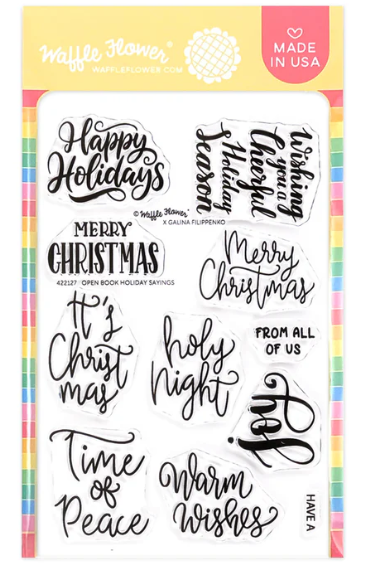 Waffle Flower
WAFFLEFLOWER.COM
MADE
IN USA
Happy
Holidays
Wishing
you a
Cheerful
Holiday
Season
© Waffle Flower®
X GALINA FILIPPENKO
MERRY
CHRISTMAS
422127 OPEN BOOK HOLIDAY SAYINGS
Merry
Christmas
It's
Christ
mas
holy
night
FROM ALL
OF US
joy
Time
of
Peace
Warm
Wishes
HAVE A